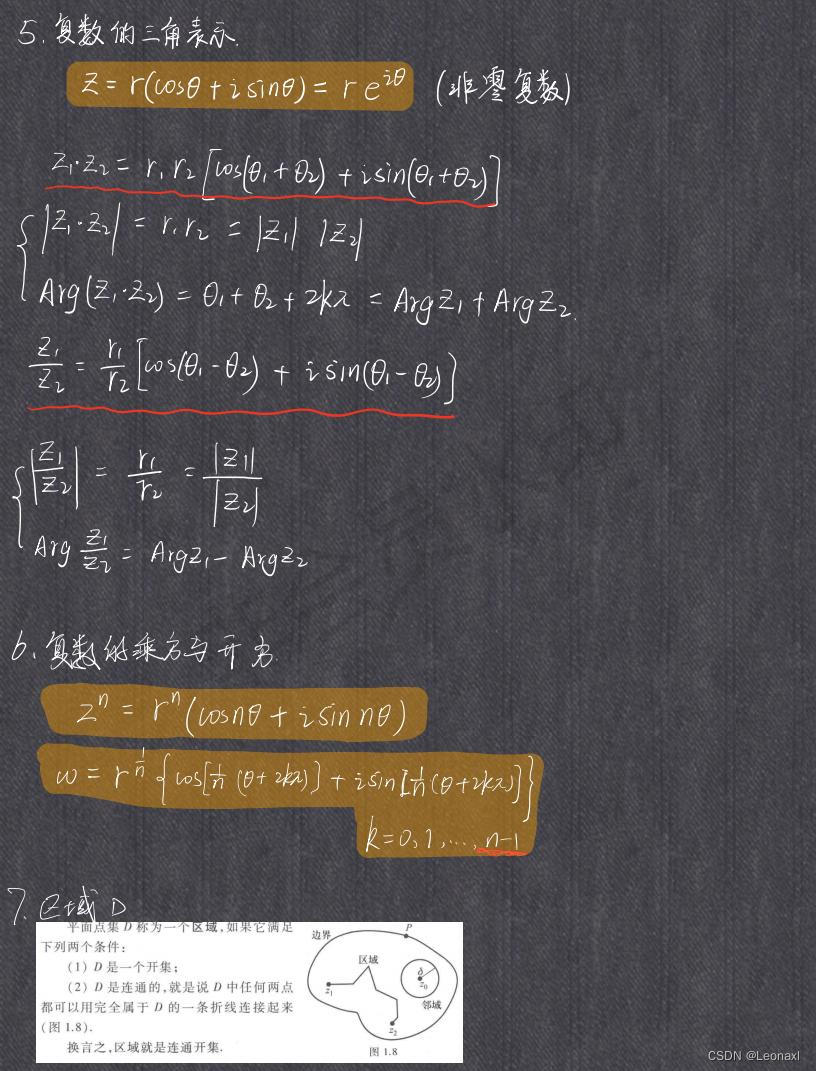 5. 复数的三角表示.
z = r(cosθ + i sinθ) = r e^{iθ} (非零复数)
z₁·z₂ = r₁r₂[cos(θ₁+θ₂) + i sin(θ₁+θ₂)]
|z₁·z₂| = r₁r₂ = |z₁| |z₂|
Arg(z₁·z₂) = θ₁ + θ₂ + 2kπ = Argz₁ + Argz₂.
z₁/z₂ = r₁/r₂ [cos(θ₁-θ₂) + i sin(θ₁-θ₂)]
|z₁/z₂| = r₁/r₂ = |z₁|/|z₂|
Arg z₁/z₂ = Argz₁ - Argz₂
6. 复数的乘方与开方.
zⁿ = rⁿ(cosnθ + i sin nθ)
w = r^{1/n} {cos[1/n (θ+2kπ)] + i sin[1/n (θ+2kπ)]}
k=0,1,…,n-1
7. 区域 D
平面点集 D 称为一个区域,如果它满足
下列两个条件:
(1) D 是一个开集;
(2) D 是连通的,就是说 D 中任何两点
都可以用完全属于 D 的一条折线连接起来
(图 1.8).
换言之,区域就是连通开集.
边界
P
区域
δ
z₀
z₁
邻域
z₂
图 1.8
CSDN @Leonaxl